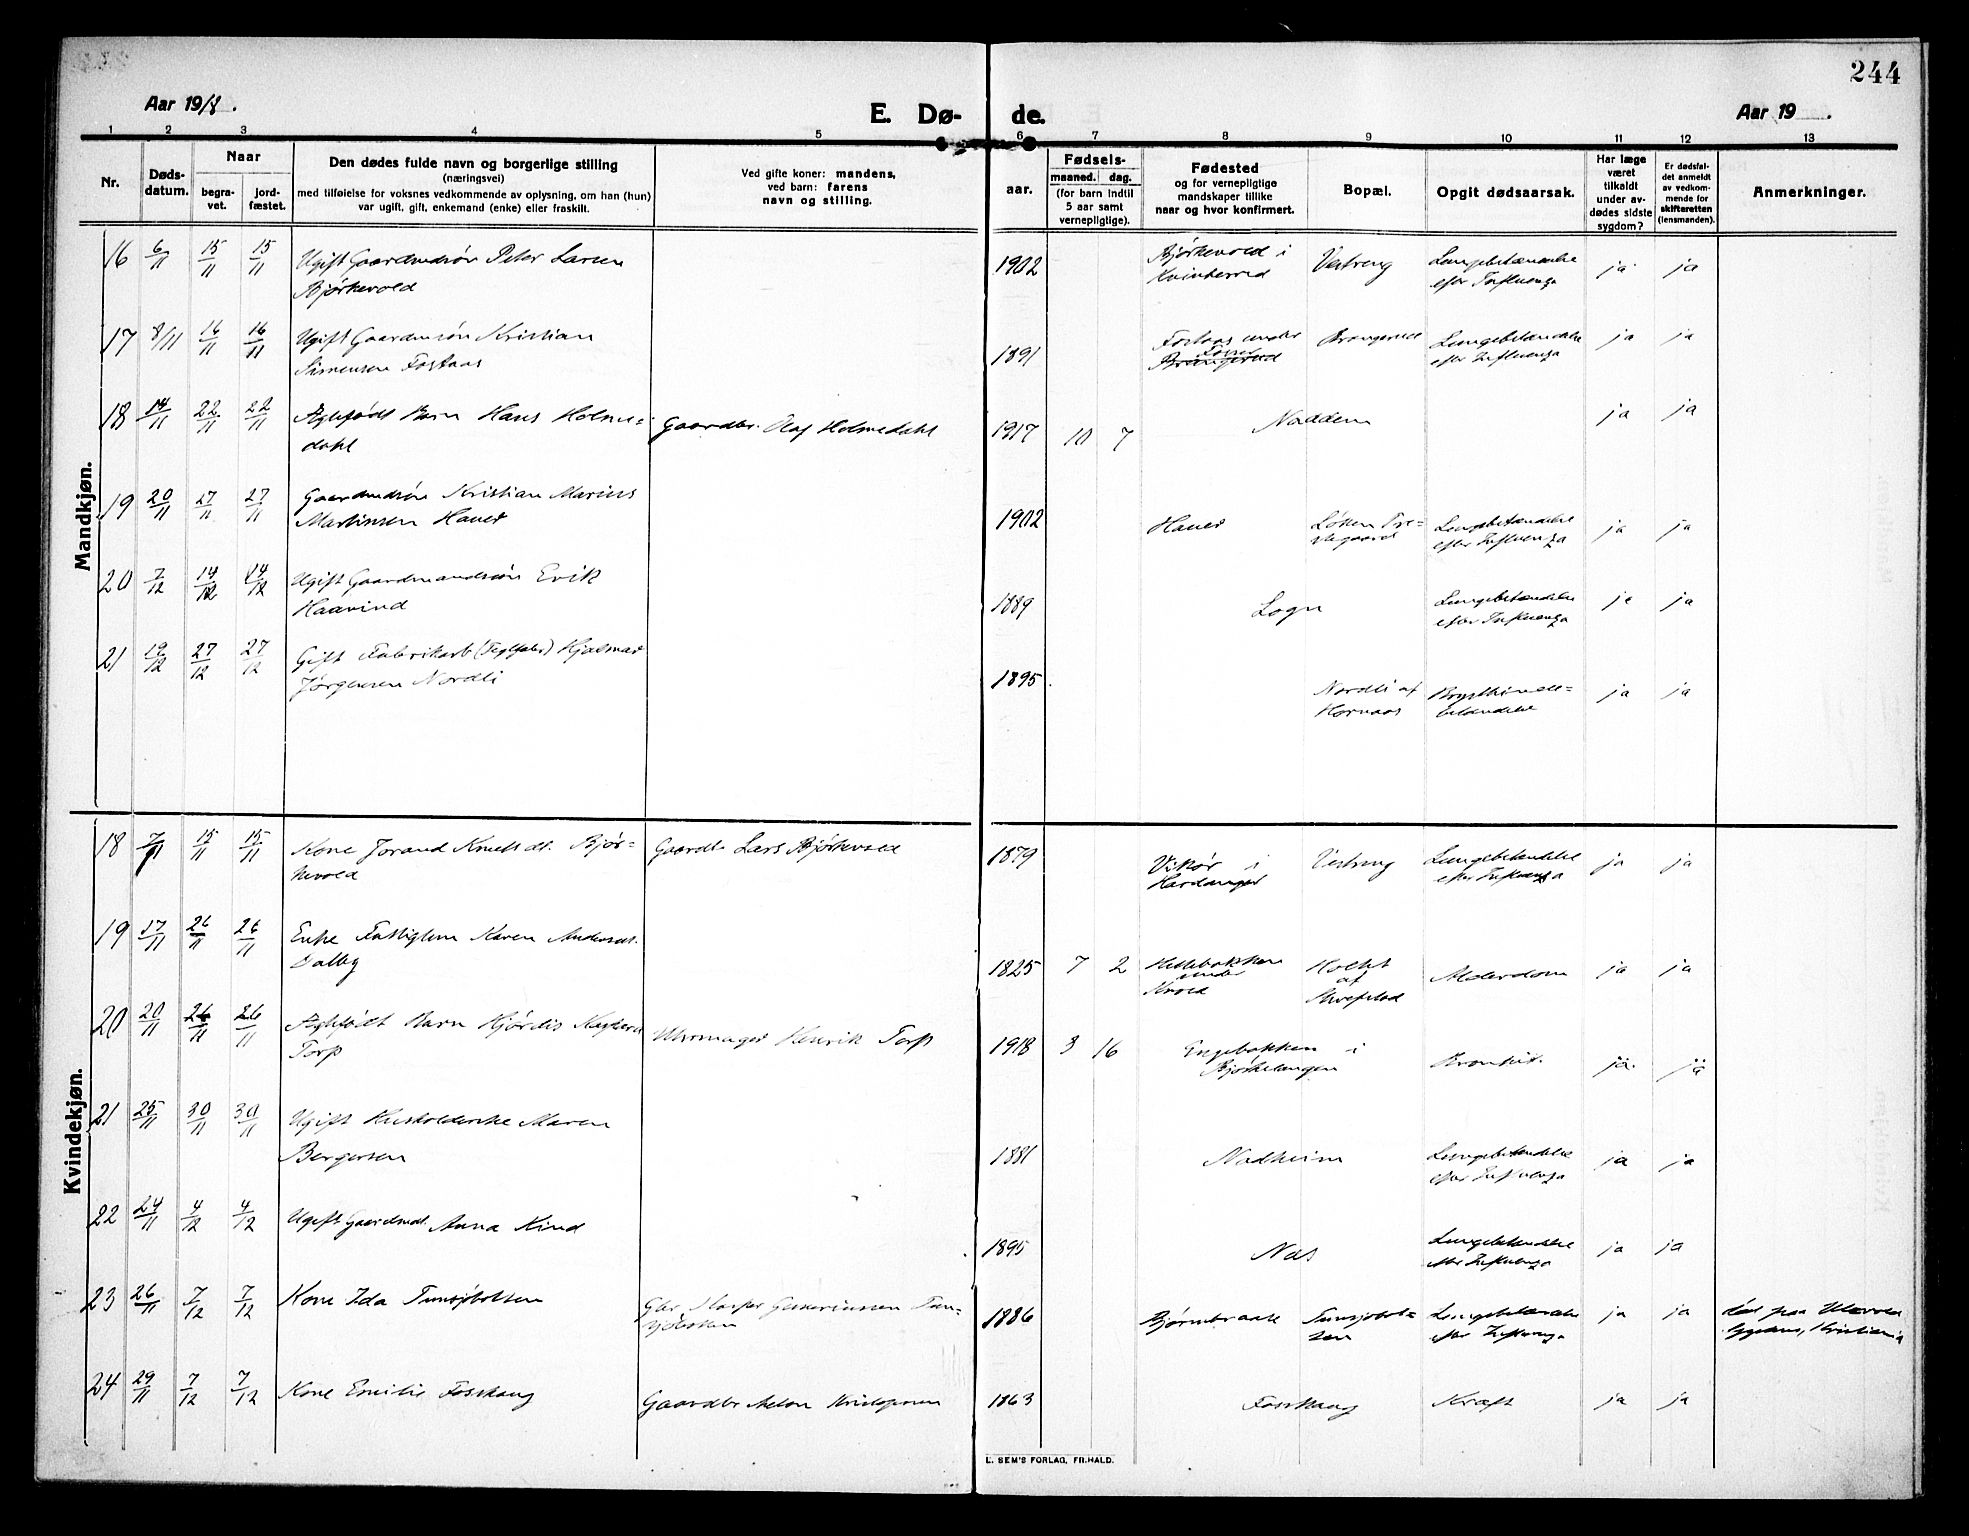 244
Aar 1918.
E. Dø-
de.
Aar 19 .
1 2 3 4 5 6 7 8 9 10 11 12 13
Nr.
Døds-
datum.
Naar
begra-
vet.
jord-
fæstet.
Den dødes fulde navn og borgerlige stilling
(næringsvei)
med tilføielse for voksnes vedkommende av oplysning, om han (hun)
var ugift, gift, enkemand (enke) eller fraskilt.
Ved gifte koner: mandens,
ved barn: farens
navn og stilling.
aar.
Fødsels-
maaned. dag.
(for barn indtil
5 aar samt
vernepligtige).
Fødested
og for vernepligtige
mandskaper tillike
naar og hvor konfirmert.
Bopæl.
Opgit dødsaarsak.
Har læge
været
tilkaldt
under av-
dødes sidste
sygdom?
Er dødsfal-
det anmeldt
av vedkom-
mende for
skifteretten
(lensmanden).
Anmerkninger.
Mandkjøn.
16 6/11 15/11 15/11 Ugift Gaardmdsøn Peter Larsen 1902 Bjørkevold i Vestreng Lungebetændelse ja ja
Bjørkevold Kvinherred efter Influenza
17 8/11 16/11 16/11 Ugift Gaardmsøn Kristian 1891 Fostaas under Brangerud Lungebetændelse ja ja
Simensen Fostaas Fosser Brangerud efter Influenza
18 14/11 22/11 22/11 Ægtefødt Barn Hans Holme- Gaardbr. Olaf Holmedahl 1917 10 7 Naddem ja ja
dahl
19 20/11 27/11 27/11 Gaardmdsøn Kristian Marius 1902 Haner Løken Pre- Lungebetændelse ja ja
Martinsen Haner stegaard efter Influenza
20 7/12 14/12 14/12 Ugift Gaardmandssøn Erik 1889 Sogn Lungebetændelse ja ja
Haavind efter Influenza
21 19/12 27/12 27/12 Gift Fabrikarb (Teglfabr) Hjalmar 1895 Nordli af Brysthinde- ja ja
Jørgensen Nordli Hornaas betændelse
Kvindekjøn.
18 7/11 15/11 15/11 Kone Jorand Knuts dt. Bjør- Gaardb. Lars Bjørkevold 1879 Vikør i Vestreng Lungebetændelse ja ja
kevold Hardanger efter Influenza
19 17/11 26/11 26/11 Enke Fattiglem Karen Andersdt. 1825 7 2 Hellebakken Alderdom ja ja
Dalby under af
20 20/11 26/11 26/11 Ægtefødt Barn Hjørdis Urmager Henrik Torp 1918 3 16 Engebakken i Bronkit. ja ja
Torp Bjørkelangen
21 25/11 30/11 30/11 Ugift Husholderske Maren 1881 Nadheim Lungebetændelse ja ja
Bergersen efter Influenza
22 24/11 4/12 4/12 Ugift Gaardmdt. Anna Kind 1895 Næs Lungebetændelse ja ja
efter Influenza
23 26/11 7/12 7/12 Kone Ida Tunsjøbotten Gbr. Tun- 1886 Bjørnbraate Tunsjøbot- Lungebetændelse ja ja død paa Ullevold
sjøbotten ten efter Influenza sygehus, Kristiania
24 29/11 7/12 7/12 Kone Emilie Fosshaug Gaardbr Anton Kristoffersen 1863 Fosshaug Kræft ja ja
L. SEM'S FORLAG, FR.HALD.